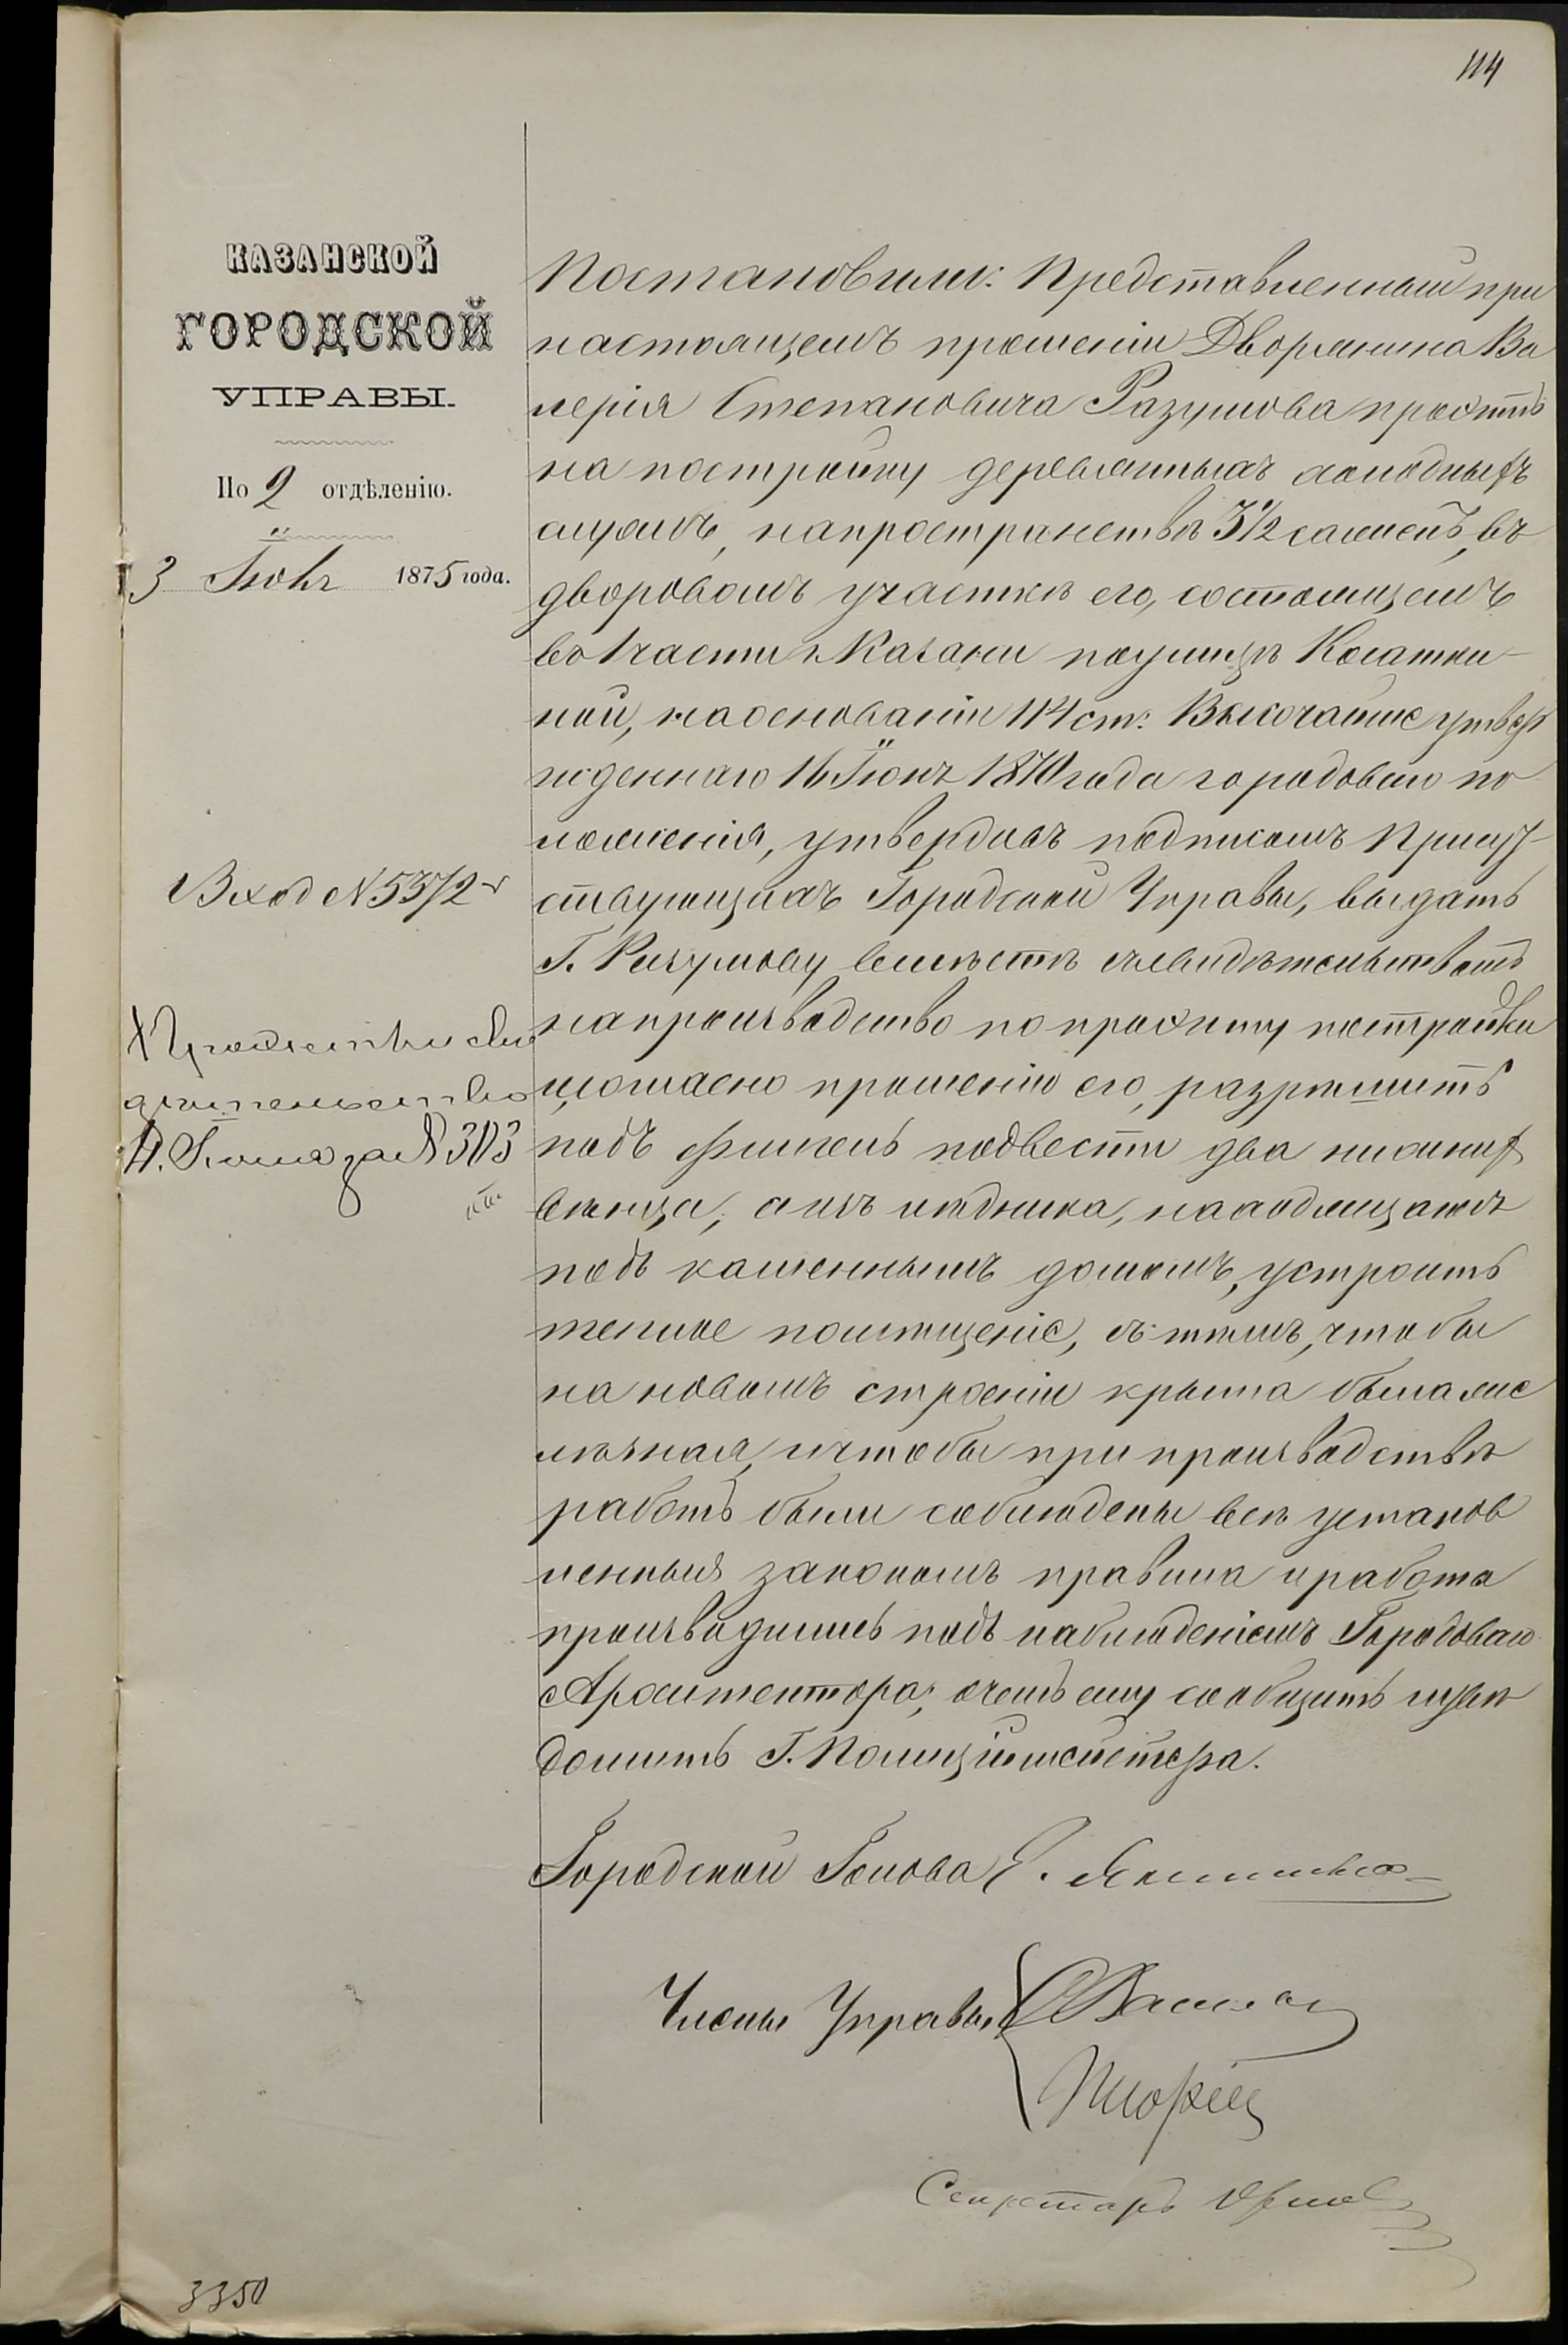 114
КАЗАНСКОЙ
ГОРОДСКОЙ
УПРАВЫ.
По 2 отдѣленію.
3 Іюня 1875 года.
Вход № 5372
дѣтельство
за № 303
Постановили: Представленный при
настоящемъ прошеніи Дворянина Ва
лерія Степановича Разумова проэктъ
на постройку деревянныхъ холодныхъ
службъ, на пространствѣ 3½ сажень, въ
дворовомъ участкѣ его, состоящемъ
во 1 части г. Казани по улицѣ Касатки-
ной, на основаніи 114 ст: Высочайше утвер
жденнаго 16 Іюня 1870 года городоваго по
ложенія, утвердивъ подписомъ Присут-
ствующихъ Городской Управы, выдать
Г. Разумову вмѣстѣ съ свидѣтельствомъ
на производство по проэкту постройки
согласно прошенію его, разрѣшить
подъ флигель подвести два нижнихъ
вѣнца, а изъ ледника, находящагося
подъ каменнымъ домомъ, устроить
теплое помѣщеніе, съ тѣмъ, чтобы
на новомъ строеніи крыша была же
лѣзная, и чтобы при производствѣ
работъ были соблюдены всѣ установ
ленныя закономъ правила и работа
производилась подъ наблюденіемъ Городоваго
Архитектора; о чемъ ему сообщить и увѣ
домить Г. Полиціймейстера.
Городской Голова Е.
Члены Управы
Секретарь
3350